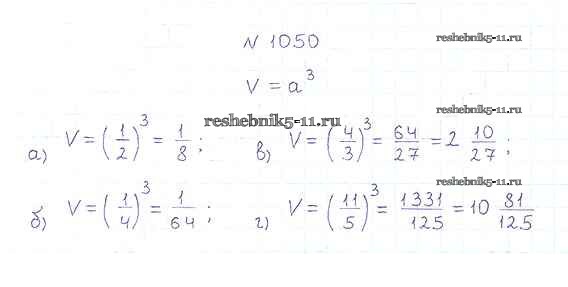 N 1050
reshebnik5-11.ru
V = a³
reshebnik5-11.ru
reshebnik5-11.ru
а) V = (1/2)³ = 1/8 ; в) V = (4/3)³ = 64/27 = 2 10/27 ;
reshebnik5-11.ru
б) V = (1/4)³ = 1/64 ; г) V = (11/5)³ = 1331/125 = 10 81/125